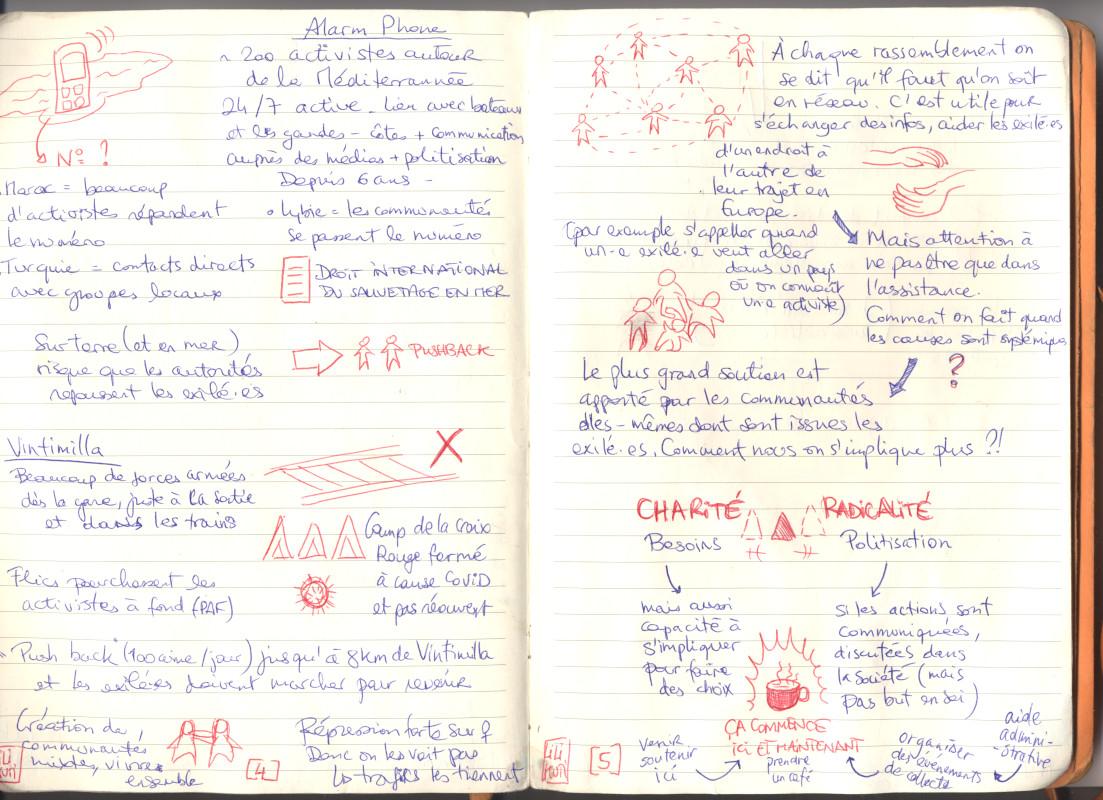 Alarm Phone
~ 200 activistes autour
de la Méditerrannée
24/7 active - Lien avec bateaux
et les gardes-côtes + communication
auprès des médias + politisation
Depuis 6 ans -
N° ?
Maroc = beaucoup
d'activistes répandent
le numéro
• Lybie = les communautés
se passent le numéro
Turquie = contacts directs
avec groupes locaux
DROIT INTERNATIONAL
DU SAUVETAGE EN MER
Sur terre (et en mer)
risque que les autorités
repoussent les exilé·es
PUSHBACK
Vintimilla
Beaucoup de forces armées
dès la gare, juste à la sortie
et dans les trains
Camp de la Croix
Rouge fermé
à cause COVID
et pas réouvert
Flics pourchassent les
activistes à fond (PAF)
Push back (100aine/jour) jusqu'à 8km de Vintimilla
et les exilé·es doivent marcher pour revenir
Création de
communautés
mixtes, vivre
ensemble
Répression forte sur
Donc on les voit pas
les tiennent
[4]
À chaque rassemblement on
se dit qu'il faut qu'on soit
en réseau. C'est utile pour
s'échanger des infos, aider les exilé·es
d'un endroit à
l'autre de
leur trajet en
Europe.
(par exemple s'appeller quand
un·e exilé·e veut aller
dans un pays
où on connaît
un·e activiste)
Mais attention à
ne pas être que dans
l'assistance.
Comment on fait quand
les causes sont systémiques
?
Le plus grand soutien est
apporté par les communautés
elles-mêmes dont sont issues les
exilé·es. Comment nous on s'implique plus ?!
CHARITÉ
RADICALITÉ
Besoins
Politisation
mais aussi
capacité à
s'impliquer
pour faire
des choix
si les actions sont
communiquées,
discutées dans
la société (mais
pas but en soi)
ÇA COMMENCE
ICI ET MAINTENANT
venir
soutenir
ici
prendre
un café
organiser
des évènements
de collecte
aide
admini-
strative
[5]